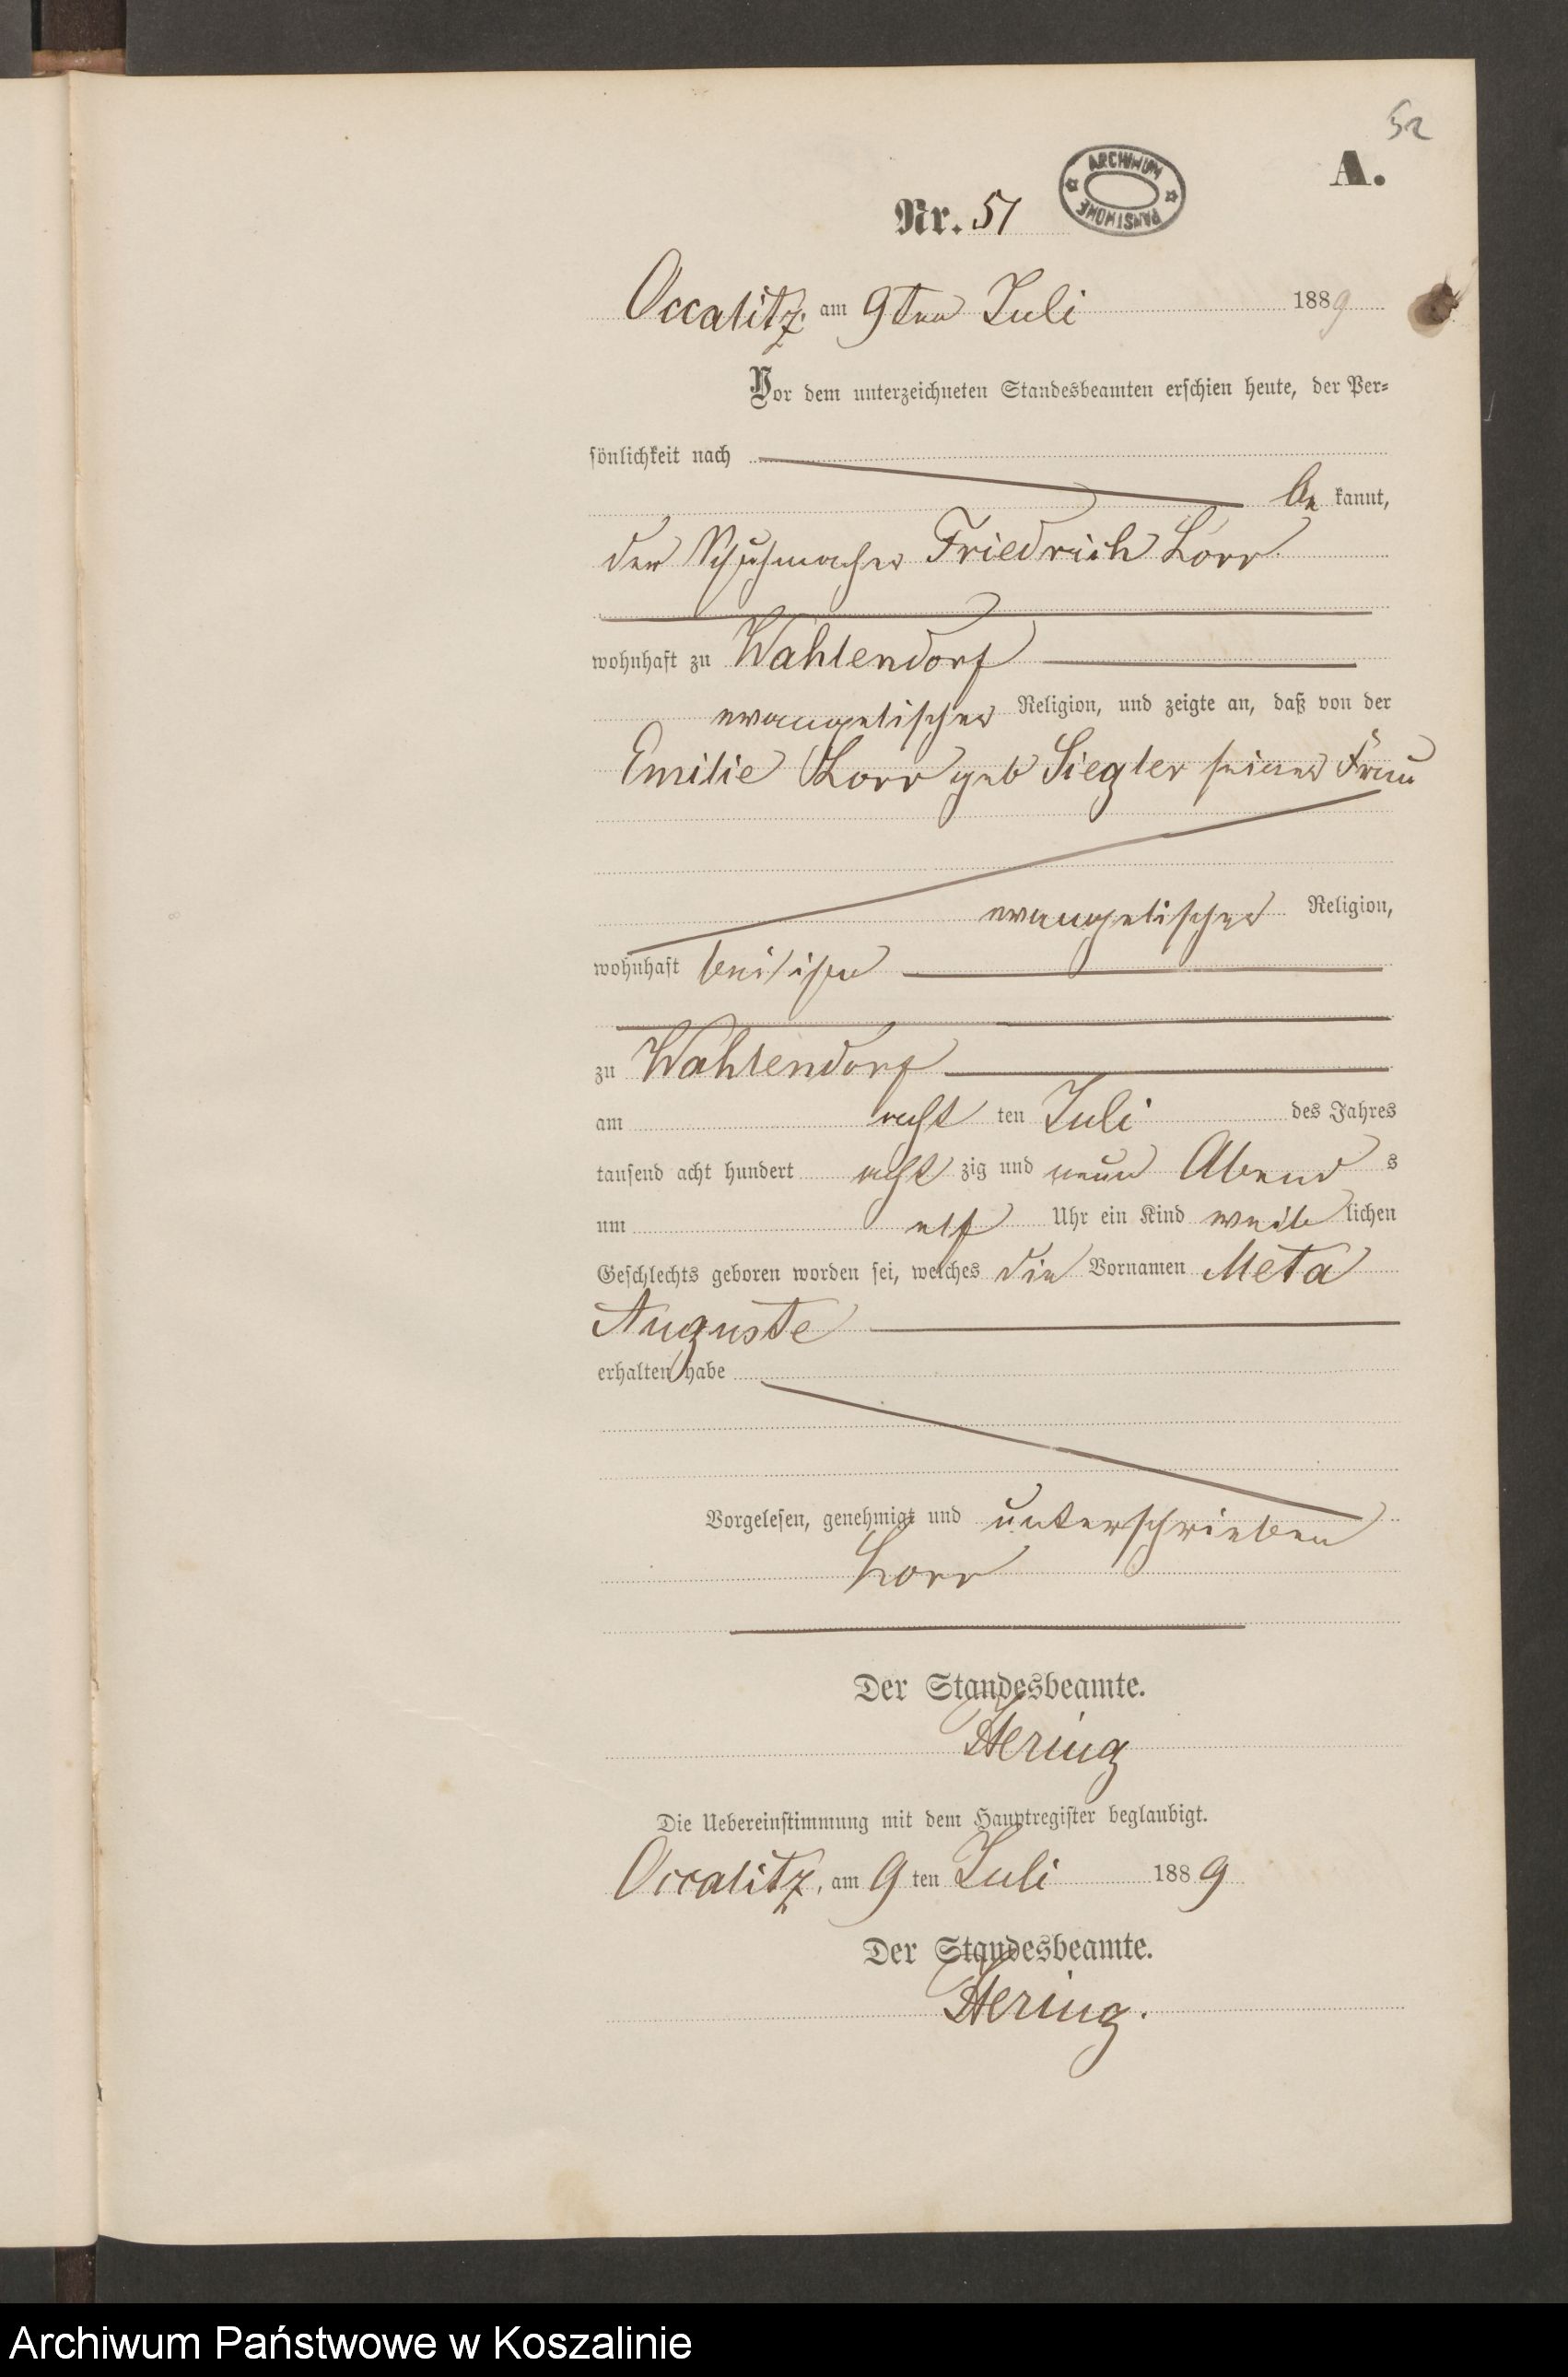 52
A.
Nr. 51
ARCHIWUM PAŃSTWOWE
Occalitz, am 9ten Juli 1889
Vor dem unterzeichneten Standesbeamten erschien heute, der Per-
sönlichkeit nach
be kannt,
der Schuhmacher Friedrich Lorr
wohnhaft zu Wahlendorf
evangelischer Religion, und zeigte an, daß von der
Emilie Lorr geb Siegler seiner Frau
evangelischer Religion,
wohnhaft bei ihm
zu Wahlendorf
am acht ten Juli des Jahres
tausend acht hundert acht zig und neun Abend s
um elf Uhr ein Kind weib lichen
Geschlechts geboren worden sei, welches die Vornamen Meta
Auguste
erhalten habe
Vorgelesen, genehmigt und unterschrieben
Lorr
Der Standesbeamte.
Hering
Die Uebereinstimmung mit dem Hauptregister beglaubigt.
Occalitz, am 9 ten Juli 1889
Der Standesbeamte.
Hering.
Archiwum Państwowe w Koszalinie